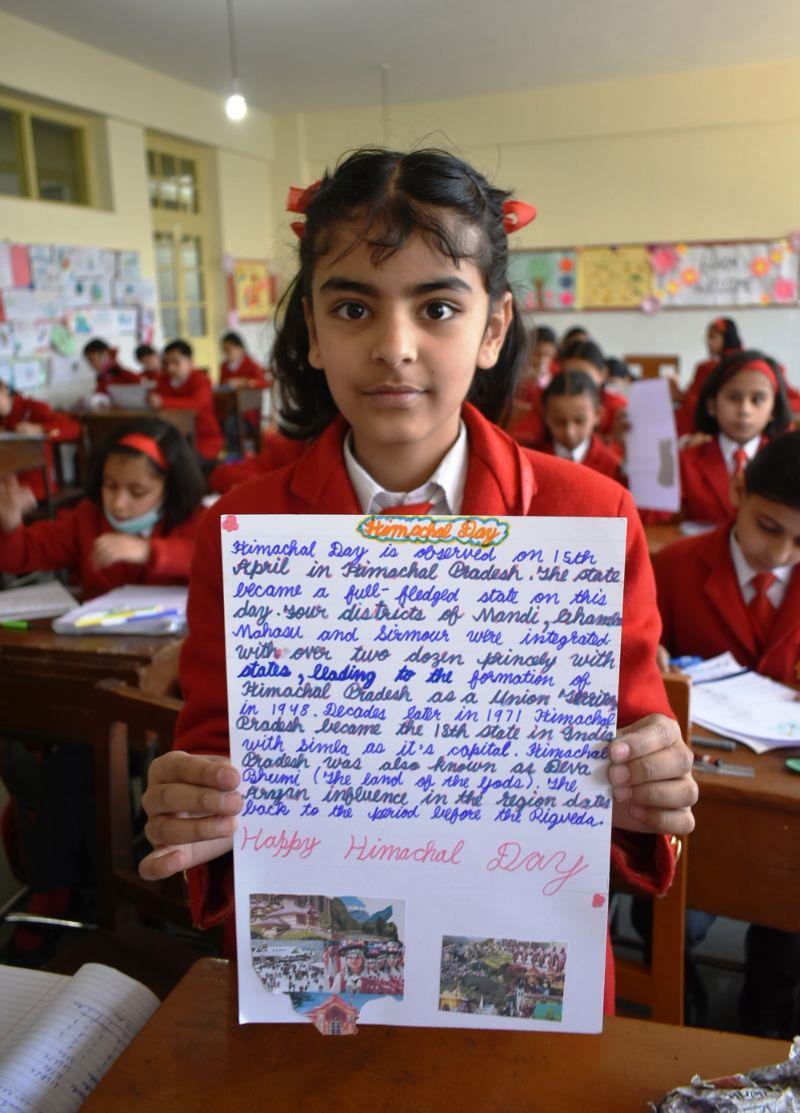 Himachal Day
Himachal Day is observed on 15th
April in Himachal Pradesh. The state
became a full-fledged state on this
day. Four districts of Mandi, Chamba
Mahasu and Sirmour were integrated
with over two dozen princely with
states, leading to the formation of
Himachal Pradesh as a Union Territory
in 1948. Decades later in 1971 Himachal
Pradesh became the 18th state in India
with Simla as it's capital. Himachal
Pradesh was also known as Deva
Bhumi (The land of the Gods). The
Aryan influence in the region dates
back to the period before the Rigveda.
Happy Himachal Day
WELCOME